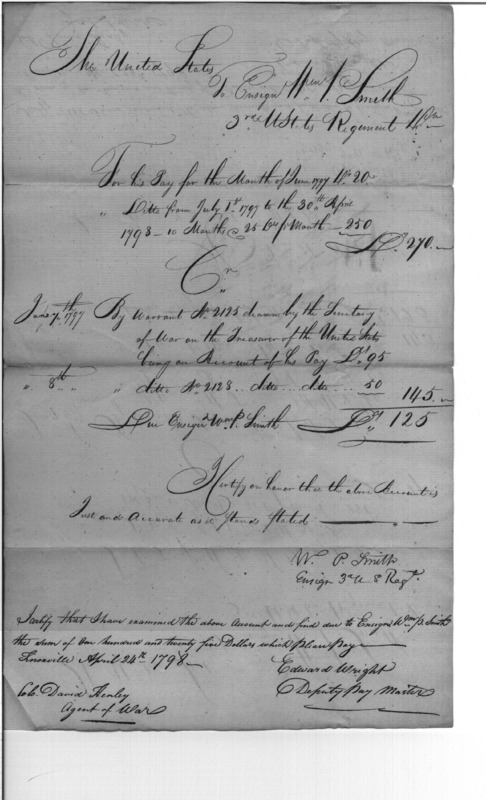 The United States
To Ensign Wm. P. Smith
3rd U States Regiment Dr.
For his Pay for the Month of June 1797 Drs. 20
" Ditto from July 1st 1797 to the 30th April
1798 - 10 Months @ 25 Drs p Month - 250
Ds. 270.
Cr
June 7th 1797 By Warrant No. 2125 drawn by the Secretary
of War on the Treasurer of the United States
being on Account of his Pay Ds. 95
" 8th " " ditto No. 2128 ditto ditto 50 145
Due Ensign Wm. P. Smith Ds. 125
I Certify on honor that the above Account is
Just and Accurate as it stands stated
W. P. Smith
Ensign 3d U S Regt.
I certify that I have examined the above Account and find due to Ensign Wm. P. Smith
the sum of One hundred and twenty five Dollars which Please Pay
Knoxville April 24th 1798
Edward Wright
Deputy Pay Master
Colo. David Henley
Agent of War